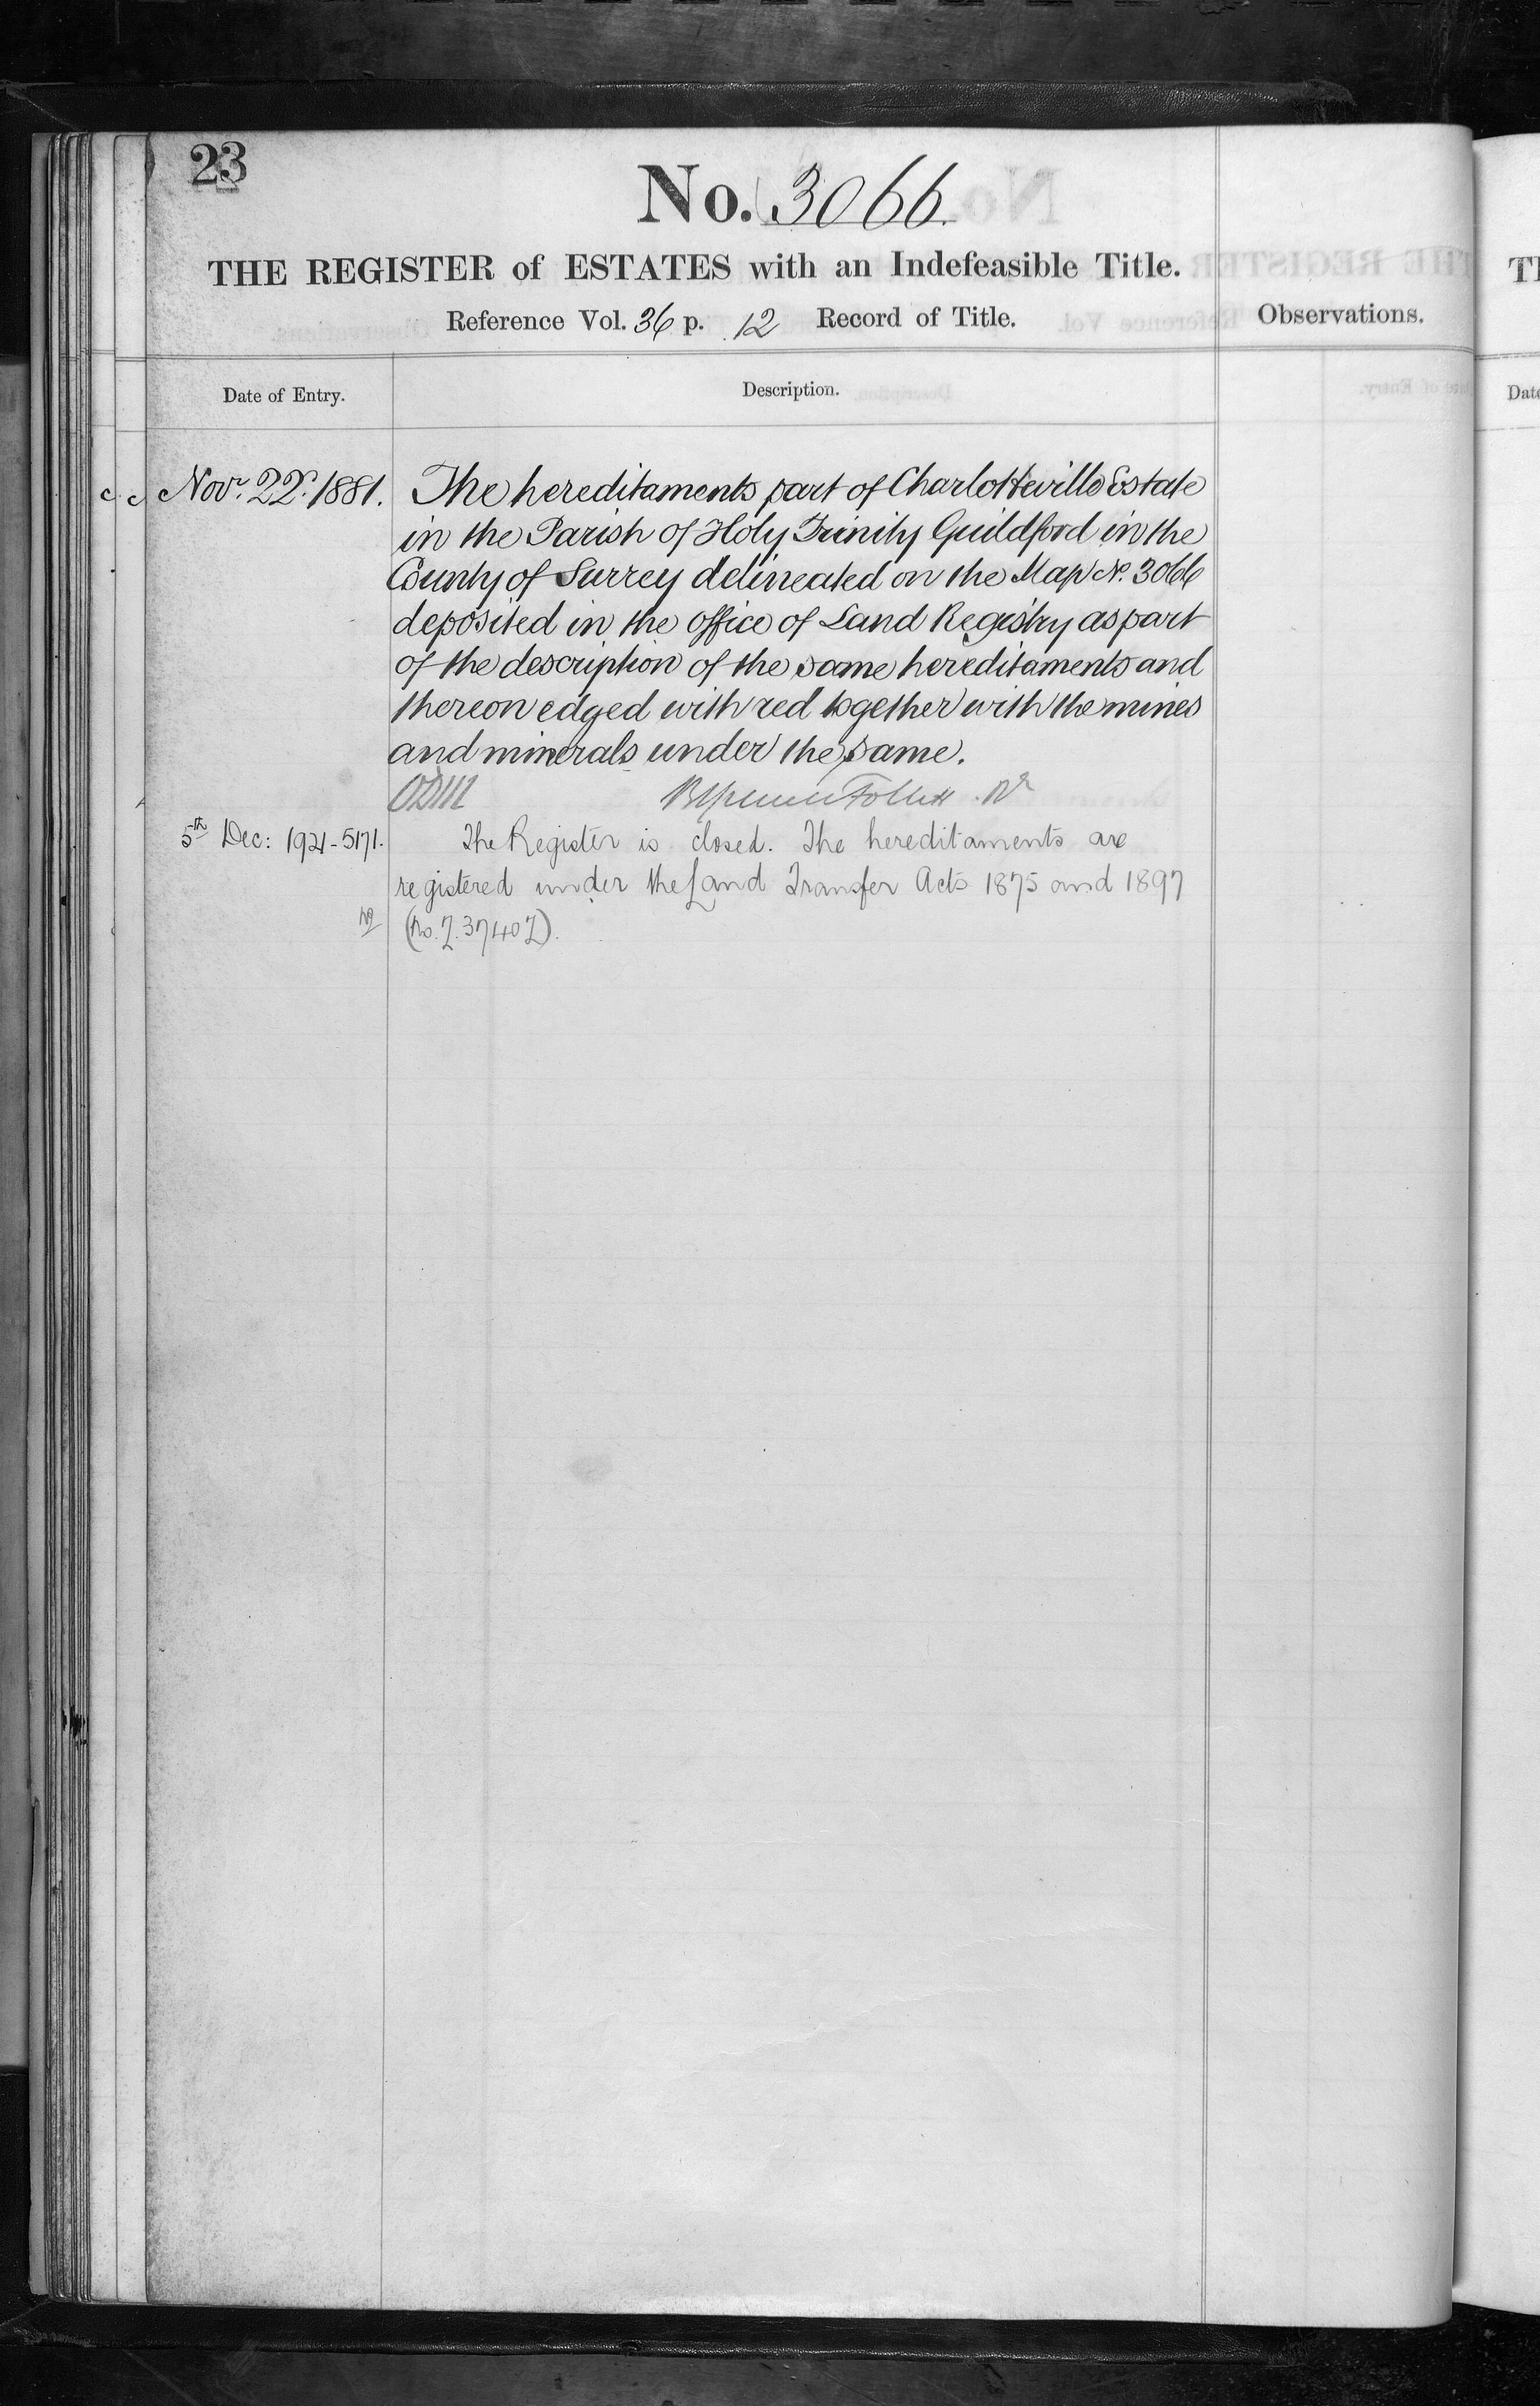 23
No. 3066.
THE REGISTER of ESTATES with an Indefeasible Title.
Reference Vol. 36 p. 12 Record of Title.
Observations.
Date of Entry.
Description.
c. c. Novr. 22. 1881. The hereditaments part of Charlotteville Estate
in the Parish of Holy Trinity Guildford in the
County of Surrey delineated on the Map No. 3066
deposited in the office of Land Registry as part
of the description of the same hereditaments and
thereon edged with red together with the mines
and minerals under the same.
Follett
5th Dec: 1921-5171. The Register is closed. The hereditaments are
registered under the Land Transfer Acts 1875 and 1897